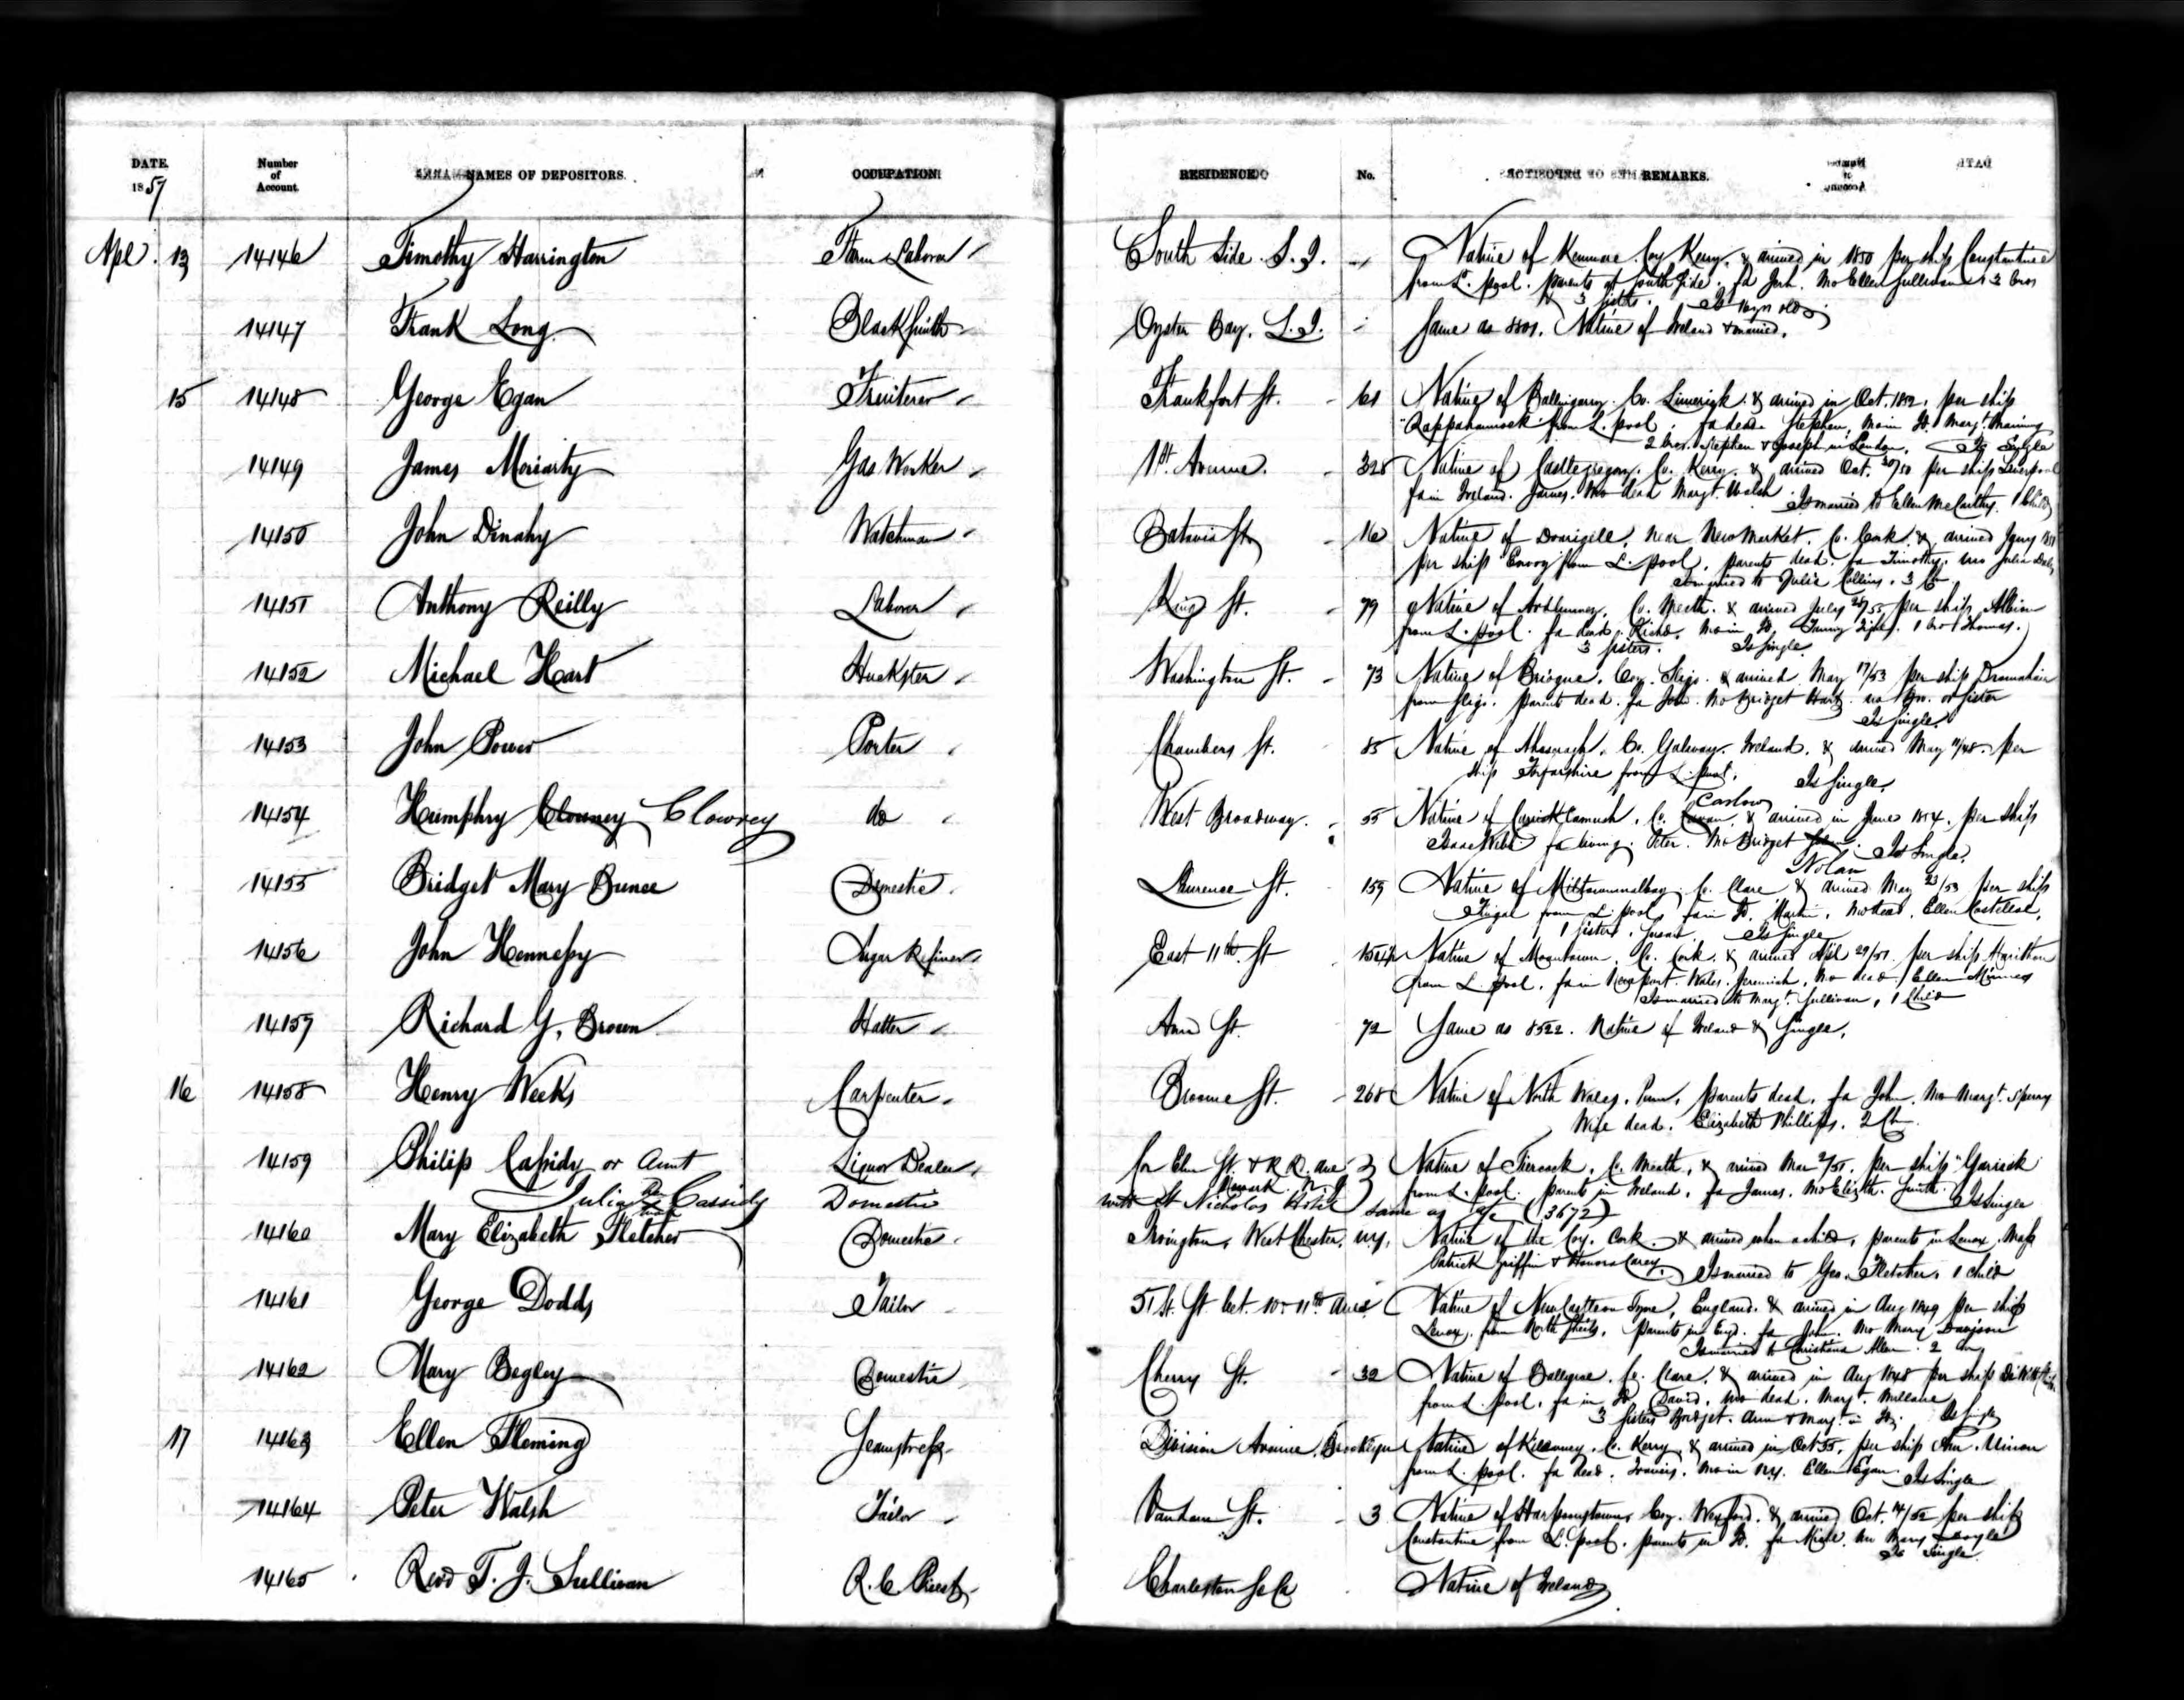 DATE. 1857
Number of Account.
NAMES OF DEPOSITORS.
OCCUPATION
RESIDENCE
No.
REMARKS.
Apl. 13 14146 Timothy Harrington Farm Laborer South Side S. I. Native of Kenmare Coy Kerry & arrived in 1850 per ship Constantine
from L. pool. parents at South Side. fa Jerh. Mo Ellen Sullivan 3 bros
& 3 sistrs. Is 16 yrs old
14147 Frank Long Blacksmith Oyster Bay, L. I. Same as 8801. Native of Ireland & married.
15 14148 George Egan Fruiterer Frankfort St. 61 Native of Ballingarry Co. Limerick & arrived in Oct. 1852. per ship
"Rappahannock" from L. pool. fa dead Stephen, Mo in Id. Margt.
2 bros. Stephen & Joseph in London. Is Single
14149 James Moriarty Gas Worker 1st. Avenue. 328 Native of Castlegregory, Co. Kerry & arrived Oct. 20/50 per ship Liverpool
fa in Ireland. James. Mo dead Margt. Walsh Is married to Ellen McCarthy. 1 Child
14150 John Dinahy Watchman Batavia St. 16 Native of near New Market. Co. Cork & arrived Jany
per ship Envoy from L. pool. parents dead. fa Timothy. mo Julia Daly
married to Julia Collins. 3 Ch
14151 Anthony Reilly Laborer King St. 79 Native of Co. Meath. & arrived July 28/55 per ship Albion
from L. pool. fa dead Richd. Mo in Id. 1 bro Thomas.
3 sisters. Is single
14152 Michael Hart Huckster Washington St. 73 Native of Coy. Sligo & arrived May 17/53 per ship Dromahair
from Sligo. parents dead. fa John. Mo Bridget Hart. no bro. or sister
Is single.
14153 John Power Porter Chambers St. 85 Native of Ahascragh, Co. Galway. Ireland. & arrived May 11/48. per
ship Forfarshire from L. pool. Is Single.
14154 Humphry Clowney Clowrey do West Broadway. 55 Native of Co. Cavan Carlow & arrived in June 1854. per ship
Isaac Webb fa living. Peter. Mo Bridget Nolan Is Single.
14155 Bridget Mary Bunce Domestic Laurence St. 159 Native of Co. Clare & arrived May 23/53 per ship
from L. pool. fa in Id. Martin. Mo dead. Ellen Costelloe.
1 sister. Is Single
14156 John Hennessy Sugar Refiner East 11th. St Native of Co. Cork. & arrived Apl 29/51. per ship
from L. pool. fa in Newport. Wales. Jeremiah. Mo dead. Ellen
Is married to Margt. Sullivan, 1 Child
14157 Richard G. Brown Hatter Ann St. 72 Same as 8522. Native of Ireland & Single.
16 14158 Henry Weeks Carpenter Broome St. 268 Native of North Wales, Penn. parents dead. fa John. Mo Margt. Sperry
Wife dead. Elizabeth Phillips. 2 Ch
14159 Philip Cassidy or Aunt Liquor Dealer Cor Elm St. & R. R. Ave Newark N. J. Native of Co. Meath, & arrived Mar 2/51. per ship "Garrick
from L. pool. parents in Ireland. fa James. Mo Elizth. Smith. Is Single
Julia Cassidy Domestic St Nicholas Hotel same as a/c (13672)
14160 Mary Elizabeth Fletcher Domestic Irvington, West Chester, N.Y. Native of the Coy. Cork & arrived when a child, parents in Lenox Mass
Patrick Griffin & Honora Carey. Is married to Geo. Fletcher. 1 child
14161 George Dodds Tailor 51 St. St bet. 10 - 11th Aves Native of New Castle on Tyne, England. & arrived in Aug 1849 per ship
Lenox. from North Sheils. parents in Engd. fa John. Mo Mary Davison
Is married to Christiana Allen. 2 Ch
14162 Mary Begley Domestic Cherry St. 32 Native of Co. Clare. & arrived in Aug 1848 per ship
from L. pool. fa in Id David. mo dead. Margt.
3 sisters Bridget. Ann & Margt. in Id. Is Single
17 14163 Ellen Fleming Seamstress Division Avenue, Brooklyn Native of Killarney. Co. Kerry & arrived in Oct 55. per ship Am. Union
from L. pool. fa dead. Francis. Mo in N.Y. Ellen Egan Is Single
14164 Peter Walsh Tailor Vandam St. 3 Native of Harpoonstown, Coy. Wexford. & arrived Oct. 14/52 per ship
Constantine from L. pool. parents in Id. fa Michl. Mo Mary Doyle
Is Single.
14165 Revd T. J. Sullivan R. C Priest Charleston So Ca Native of Ireland